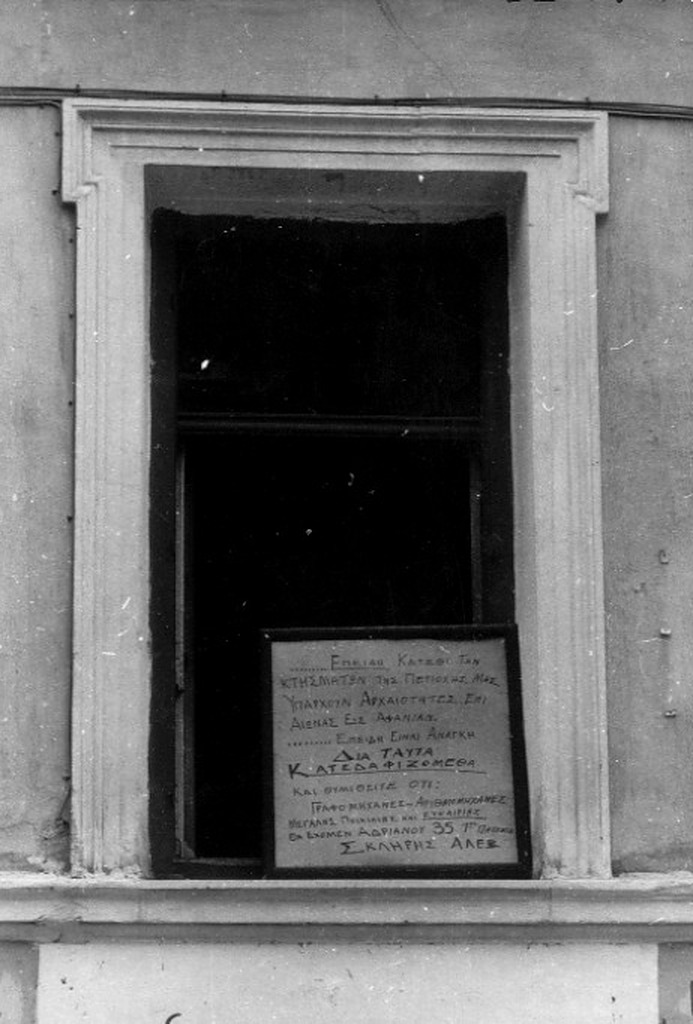 ......... ΕΠΕΙΔΗ ΚΑΤΩΘΙ ΤΩΝ
ΚΤΗΣΜΑΤΩΝ ΤΗΣ ΠΕΡΙΟΧΗΣ ΜΑΣ
ΥΠΑΡΧΟΥΝ ΑΡΧΑΙΟΤΗΤΕΣ ΕΠΙ
ΑΙΩΝΑΣ ΕΙΣ ΑΦΑΝΙΑΝ.
.......... ΕΠΕΙΔΗ ΕΙΝΑΙ ΑΝΑΓΚΗ
ΔΙΑ ΤΑΥΤΑ
ΚΑΤΕΔΑΦΙΖΟΜΕΘΑ
ΚΑΙ ΘΥΜΗΘΕΙΤΕ ΟΤΙ:
ΓΡΑΦΟΜΗΧΑΝΕΣ - ΑΡΙΘΜΟΜΗΧΑΝΕΣ
ΜΕΓΑΛΗΣ ΠΟΙΚΙΛΙΑΣ ΚΑΙ ΕΥΚΑΙΡΙΕΣ
ΘΑ ΕΧΩΜΕΝ ΑΔΡΙΑΝΟΥ 35 1ος
ΣΚΛΗΡΗΣ ΑΛΕΞ